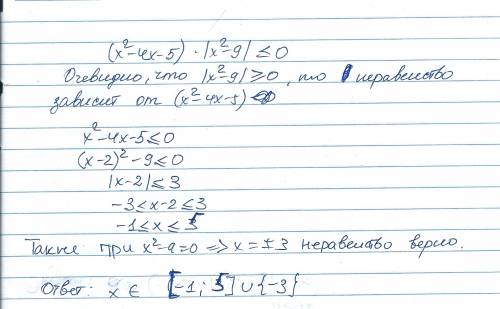 (x²-4x-5) · |x²-9| ≤ 0
Очевидно, что |x²-9| ≥ 0, то неравенство
зависит от (x²-4x-5)
x²-4x-5 ≤ 0
(x-2)² - 9 ≤ 0
|x-2| ≤ 3
-3 ≤ x-2 ≤ 3
-1 ≤ x ≤ 5
Также при x²-9=0 => x=±3 неравенство верно.
Ответ: x ∈ [-1; 5] ∪ {-3}